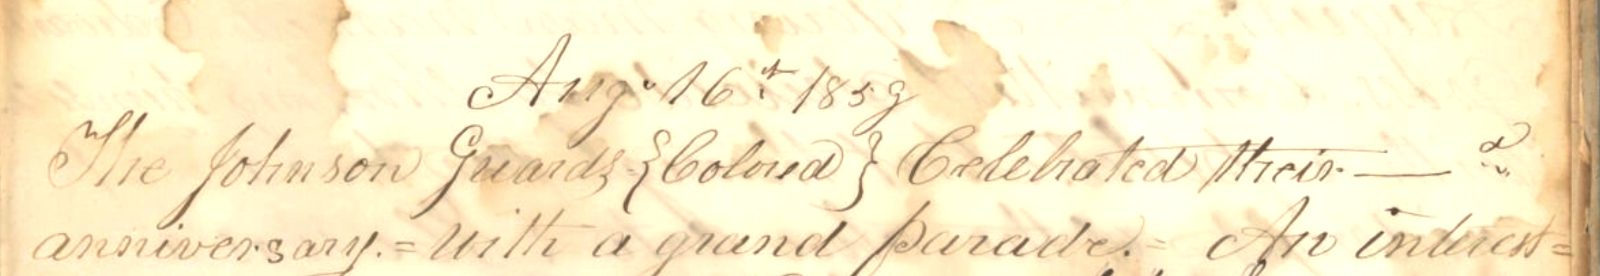 Aug. 16th 1859
The Johnson Guards {Colored} Celebrated their — d
anniversary. = with a grand parade. = An interest=